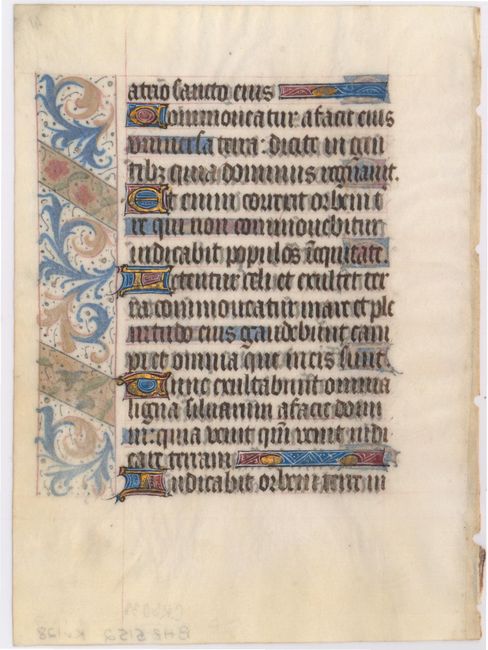 atrio sancto eius
Commoueatur a facie eius
uniuersa terra: dicite in gen
tibz quia dominus regnauit.
Et enim correxit orbem t
re qui non commouebitur
iudicabit populos i equitate.
Letentur celi et exultet ter
ra commoueatur mare et ple
nitudo eius gaudebunt cam
pi et omnia que in eis sunt
Tunc exultabunt omnia
ligna siluarum a facie domi
ni: quia venit qm̃ venit iudi
care terram
Iudicabit orbem terre in